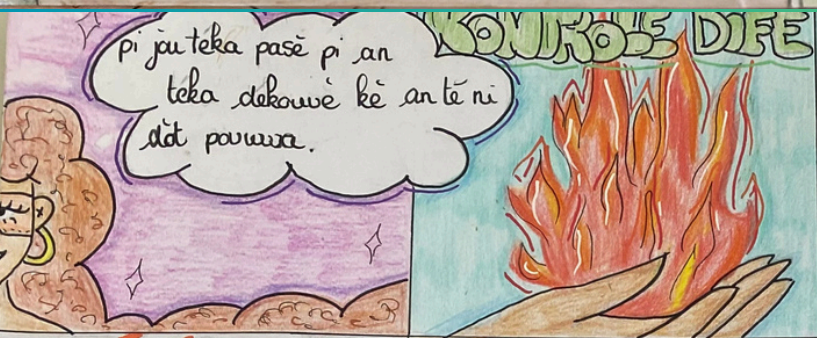 pi jou téka pasè pi an
téka dékouvè kè an té ni
dòt pouvwa.
KONTROLE DIFE